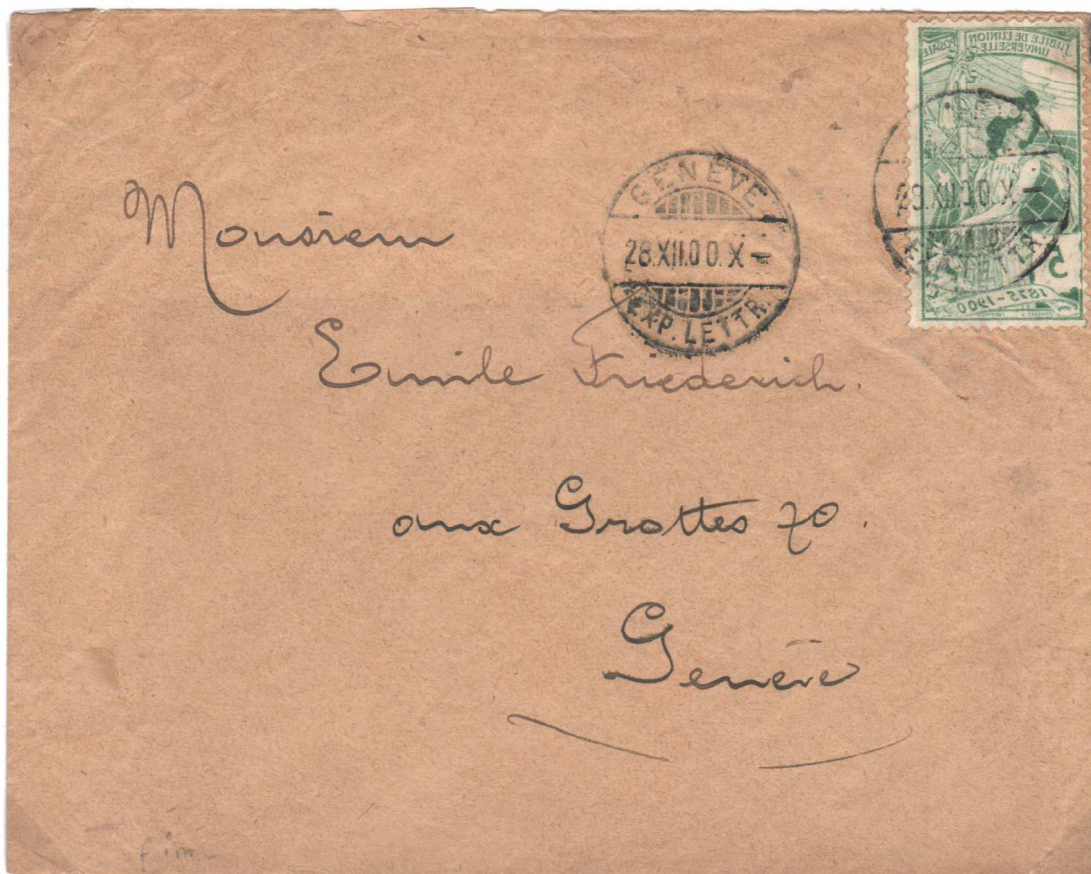 JUBILE DE L'UNION
UNIVERSELLE POSTALE
5
1875-1900
28.XII.00.X-
EXP. LETTR.
GENÈVE
28.XII.00.X-1
EXP. LETTR.
Monsieur
Emile Friederich.
aux Grottes 70.
Genève